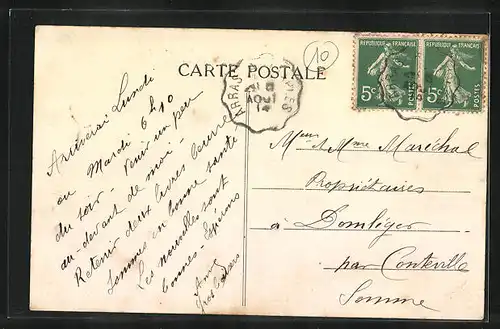 10
CARTE POSTALE
ARRAS
AOUT
14
REPUBLIQUE FRANÇAISE
5c
POSTES
REPUBLIQUE FRANÇAISE
5c
POSTES
Lundi
ou Mardi 6h10
du soir - Venir un peu
au-devant de moi -
Retenir deux livres beurre
Sommes en bonne santé
Les nouvelles sont
bonnes - Espérons
Mr & Mme Maréchal
Propriétaires
à Domléger
par Conteville
Somme